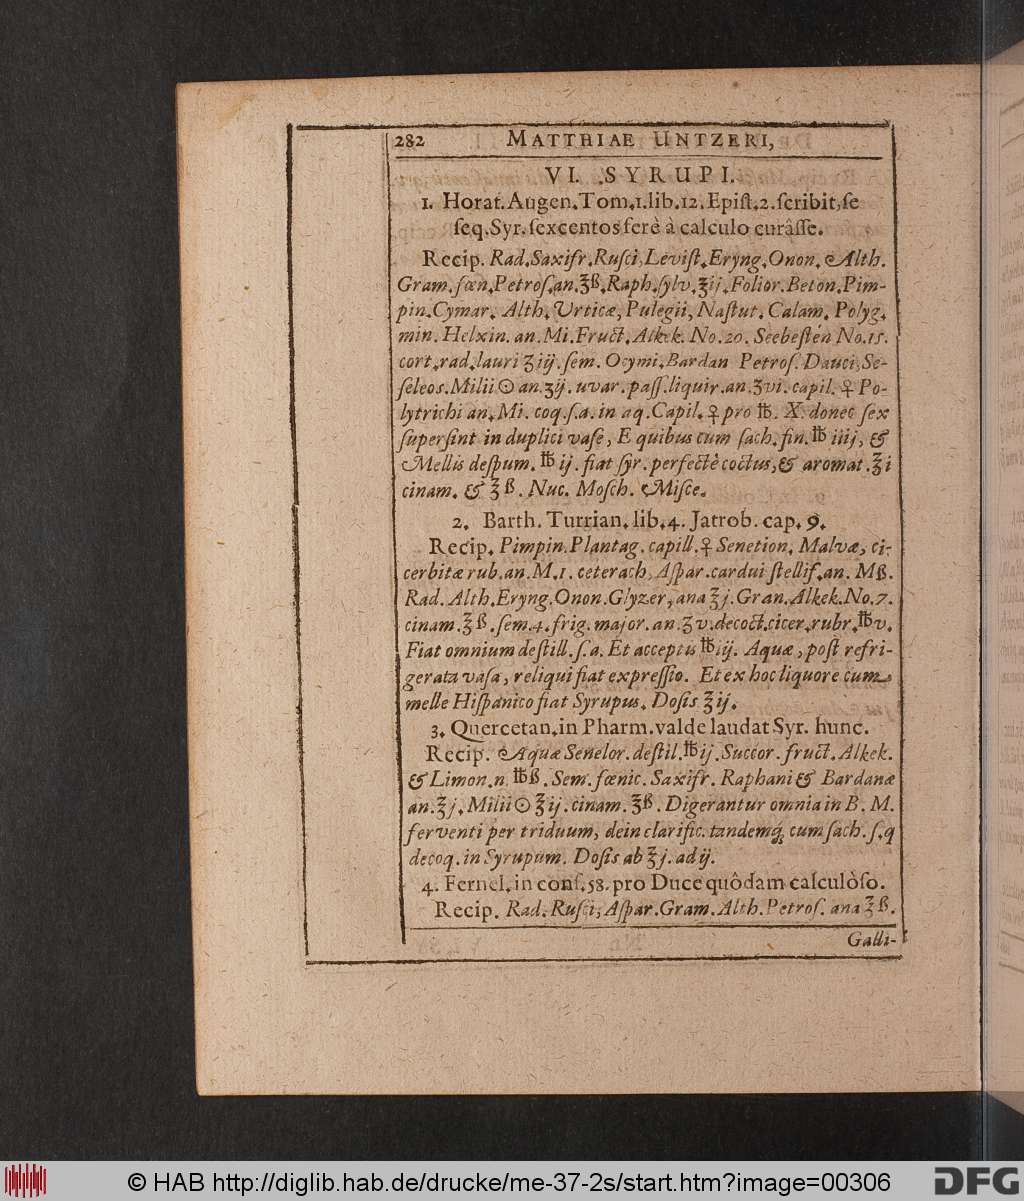 282 MATTHIAE UNTZERI,
VI. SYRUPI.
1. Horat. Augen. Tom. 1. lib. 12. Epiſt. 2. ſcribit, ſe
ſeq. Syr. ſexcentos ferè à calculo curâſſe.
Recip. Rad. Saxifr. Ruſci, Leviſt. Eryng. Onon. Alth.
Gram. fœn. Petroſ. an. ℥ß. Raph. ſylv. ℥ij. Folior. Beton. Pim-
pin. Cymar. Alth. Urticæ, Pulegii, Naſtut. Calam. Polyg.
min. Helxin. an. Mi. Fruct. Alkek. No. 20. Seebeſtén No. 15.
cort. rad. lauri ʒiij. ſem. Ocymi. Bardan Petroſ. Dauci, Se-
ſeleos. Milii ☉ an. ʒij. uvar. paſſ. liquir. an. ʒvi. capil. ♀ Po-
lytrichi an. Mi. coq. ſ. a. in aq. Capil. ♀ pro ℔. X. donec ſex
ſuperſint in duplici vaſe, E quibus cum ſach. fin. ℔ iiij, &
Mellis deſpum. ℔ ij. fiat ſyr. perfectè coctus, & aromat. ℥i
cinam. & ℥ ß. Nuc. Moſch. Miſce.
2. Barth. Turrian. lib. 4. Jatrob. cap. 9.
Recip. Pimpin. Plantag. capill. ♀ Senetion. Malvæ, ci-
cerbitæ rub. an. M. 1. ceterach, Aſpar. cardui ſtellif. an. Mß.
Rad. Alth. Eryng. Onon. Glyzer, ana ℥j. Gran. Alkek. No. 7.
cinam. ℥ ß. ſem. 4. frig. major. an. ʒ v. decoct. cicer. rubr. ℔v.
Fiat omnium deſtill. ſ. a. Et acceptis ℔iij. Aquæ, poſt refri-
gerata vaſa, reliqui fiat expreſſio. Et ex hoc liquore cum
melle Hiſpanico fiat Syrupus. Doſis ℥ij.
3. Quercetan. in Pharm. valde laudat Syr. hunc.
Recip. Aquæ Senelor. deſtil. ℔ij. Succor. fruct. Alkek.
& Limon. n. ℔ß. Sem. fœnic. Saxifr. Raphani & Bardanæ
an. ℥j. Milii ☉ ℥ij. cinam. ℥ß. Digerantur omnia in B. M.
ferventi per triduum, dein clarific. tandemq́; cum ſach. ſ. q
decoq. in Syrupum. Doſis ab ℥j. ad ij.
4. Fernel. in conſ. 58. pro Duce quôdam calculòſo.
Recip. Rad. Ruſci, Aſpar. Gram. Alth. Petroſ. ana ℥ ß.
Galli-
© HAB http://diglib.hab.de/drucke/me-37-2s/start.htm?image=00306
DFG